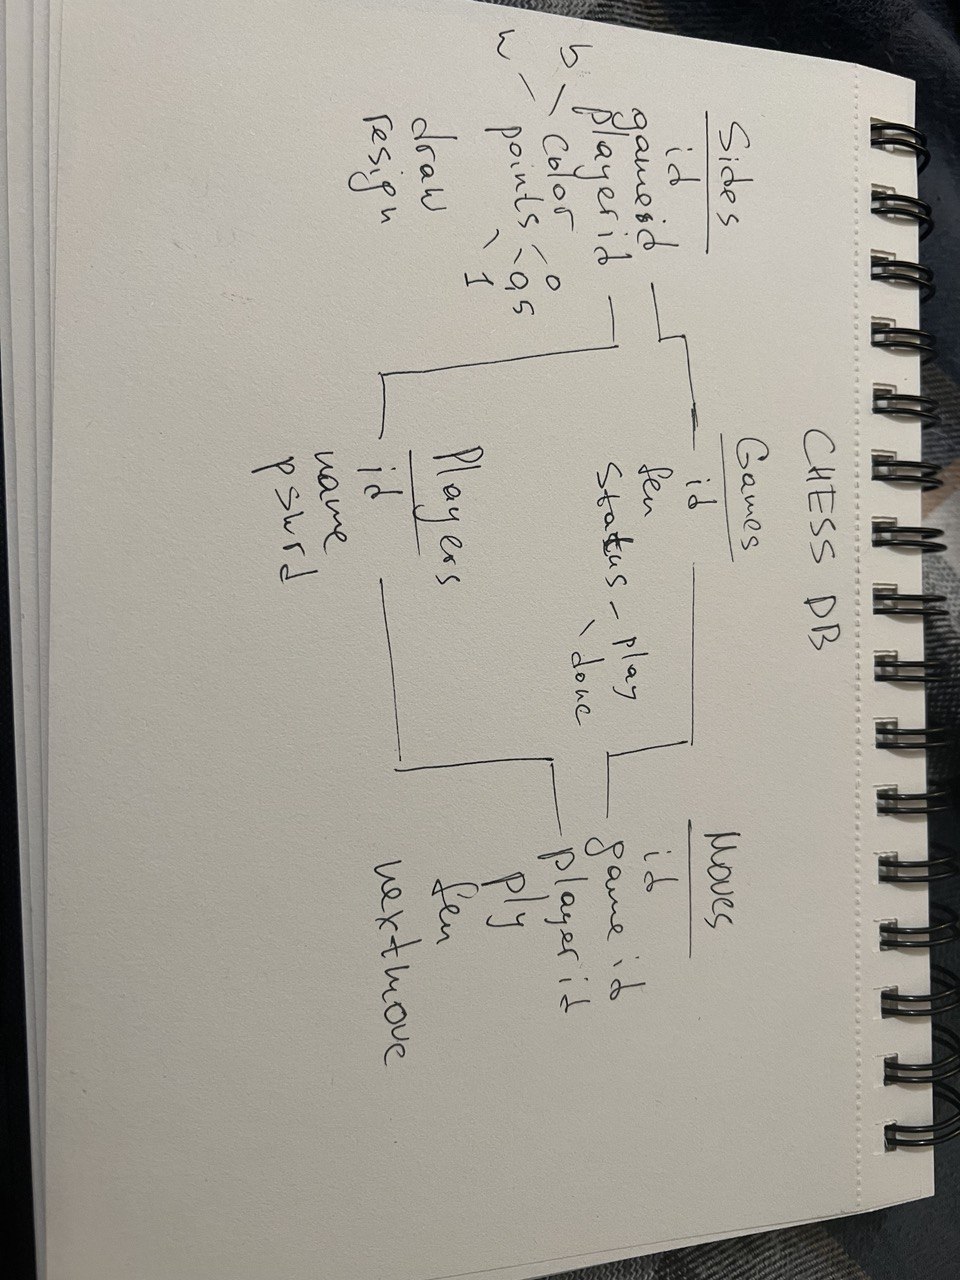 CHESS DB
Sides
id
gameid
playerid
b
w
color
points
0
0,5
1
draw
resign
Games
id
fen
status
play
done
Players
id
name
pswrd
Moves
id
game id
player id
ply
fen
nextmove